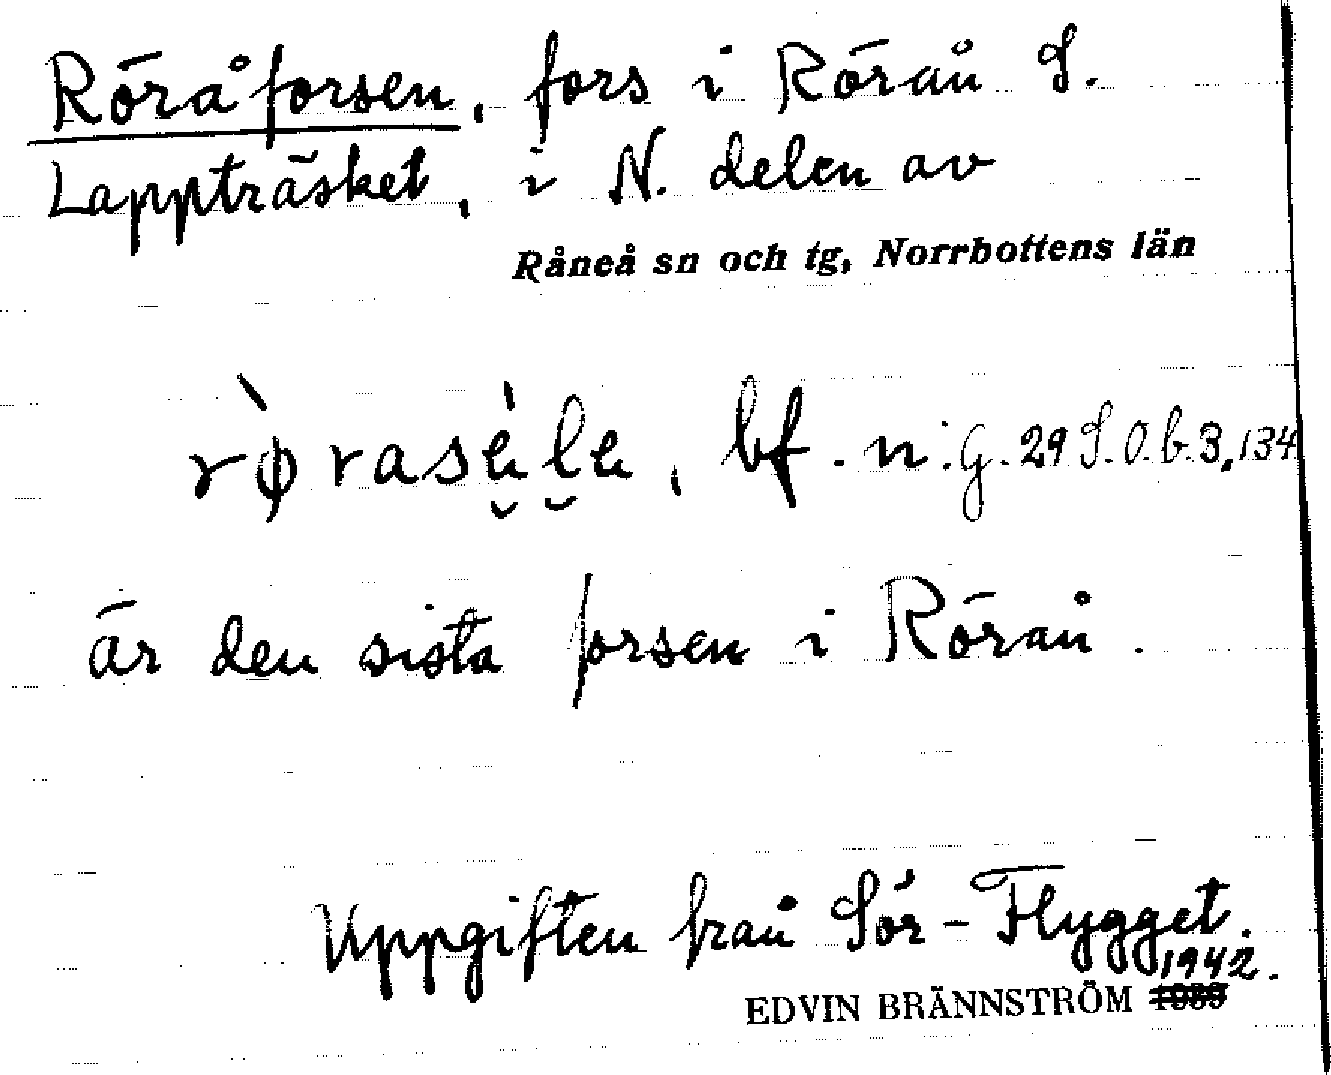 Röråforsen, fors i Rörån S.
Lappträsket, i N. delen av
Råneå sn och tg, Norrbottens län
bf. n: G. 29 S. O. b. 3, 134
är den sista forsen i Rörån.
Uppgiften från Sör-Flygget.
1942.
EDVIN BRÄNNSTRÖM 1939